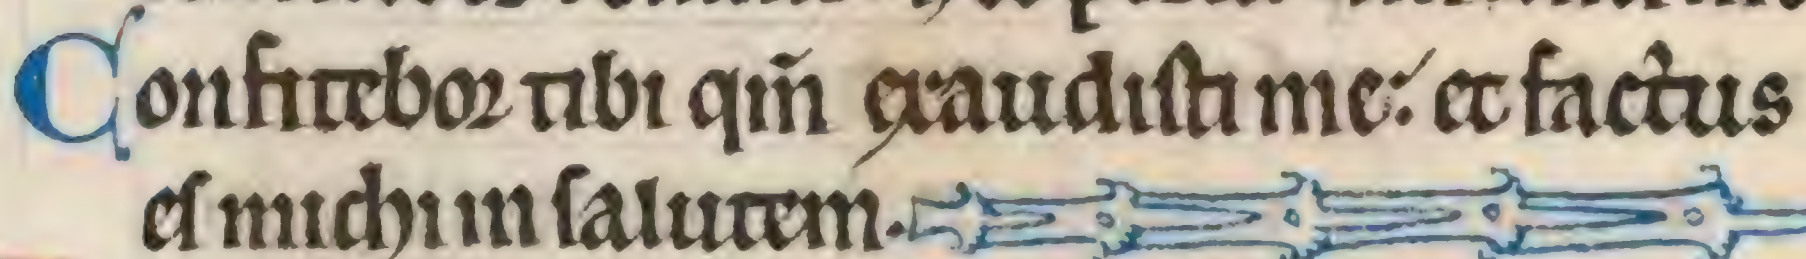 Confitebor tibi qm̄ exaudisti me: et factus
es michi in salutem.